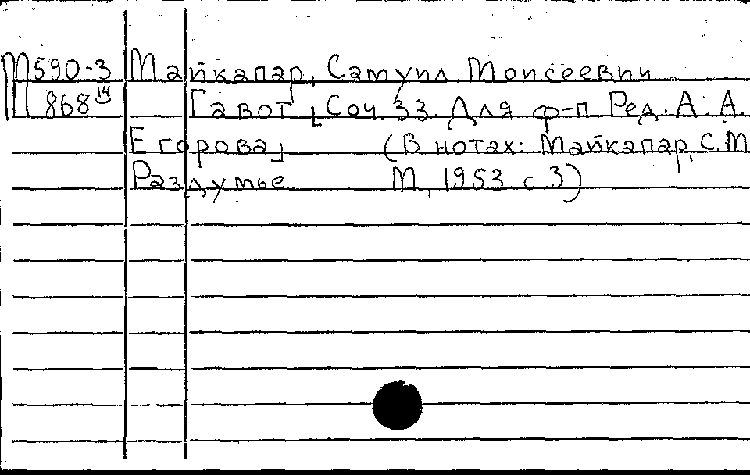 М590-3 Майкапар, Самуил Моисеевич
П868 14 Гавот [Соч. 33. Для ф-п Ред. А. А.
Егорова] (В нотах: Майкапар, С.М
Раздумье М, 1953 с 3)